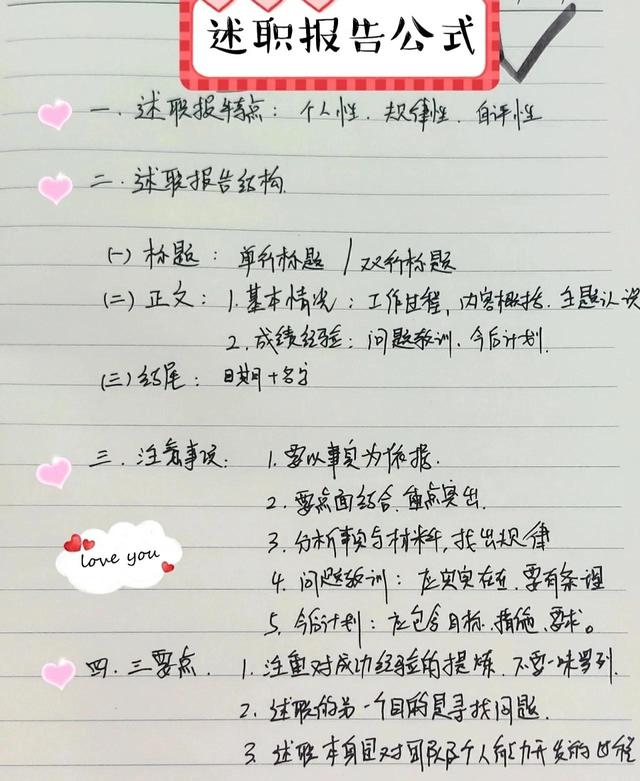 述职报告公式
一.述职报特点：个人性.规律性.自评性
二.述职报告结构
(一)标题：单行标题/双行标题
(二)正文：1.基本情况：工作过程,内容概括.主题认识
2.成绩经验：问题教训.今后计划.
(三)结尾：日期+名字
三.注意事项：1.要以事实为依据.
2.要点面结合.重点突出.
3.分析事实与材料,找出规律
love you
4.问题教训：应实实在在.要有条理
5.今后计划：应包含目标.措施.要求。
四.三要点.1.注重对成功经验的提炼.不要一味罗列.
2.述职的另一个目的是寻找问题.
3.述职本身是对团队及个人能力开发的过程